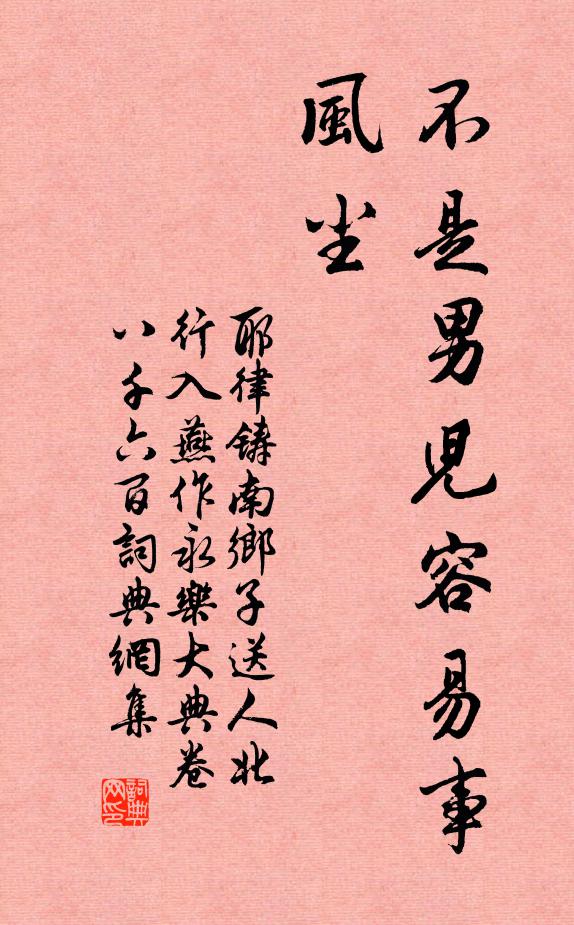 不是男兒容易事
風塵
耶律鑄南鄉子送人北
行入燕作永樂大典卷
八千六百詞典網集
詞典
网印